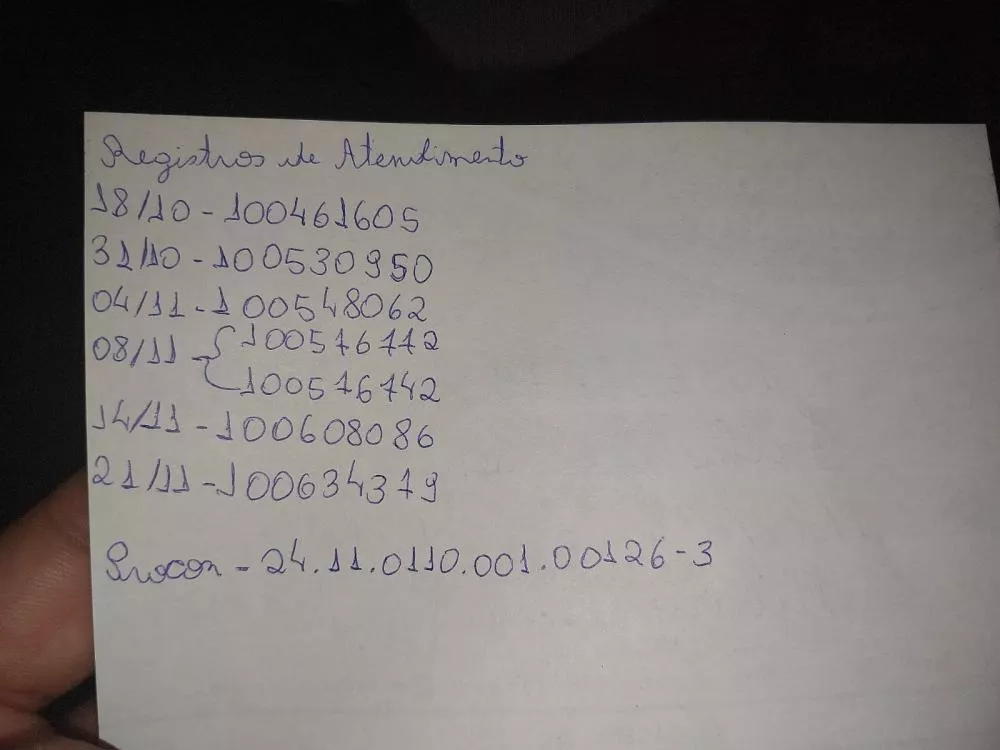 Registros de Atendimento
18/10 - 100461605
31/10 - 100530950
04/11 - 100548062
08/11 - { 100576772
100576742
14/11 - 100608086
21/11 - 100634379
Procon - 24.11.0110.001.00126-3